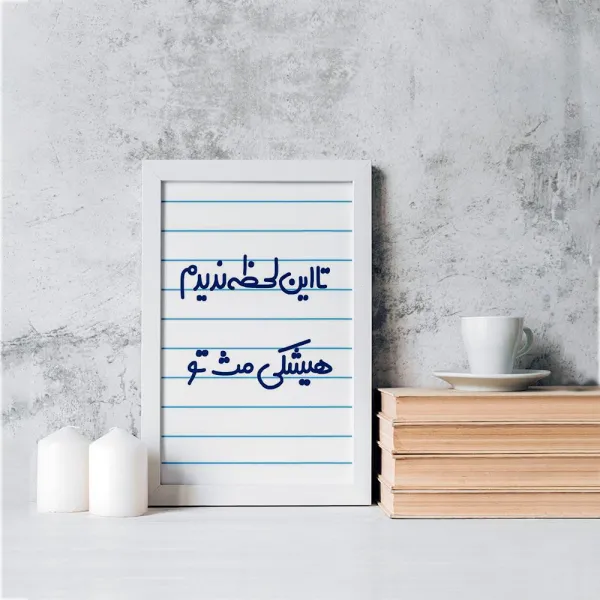 تا این لحظه ندیدم
هیشکی مث تو